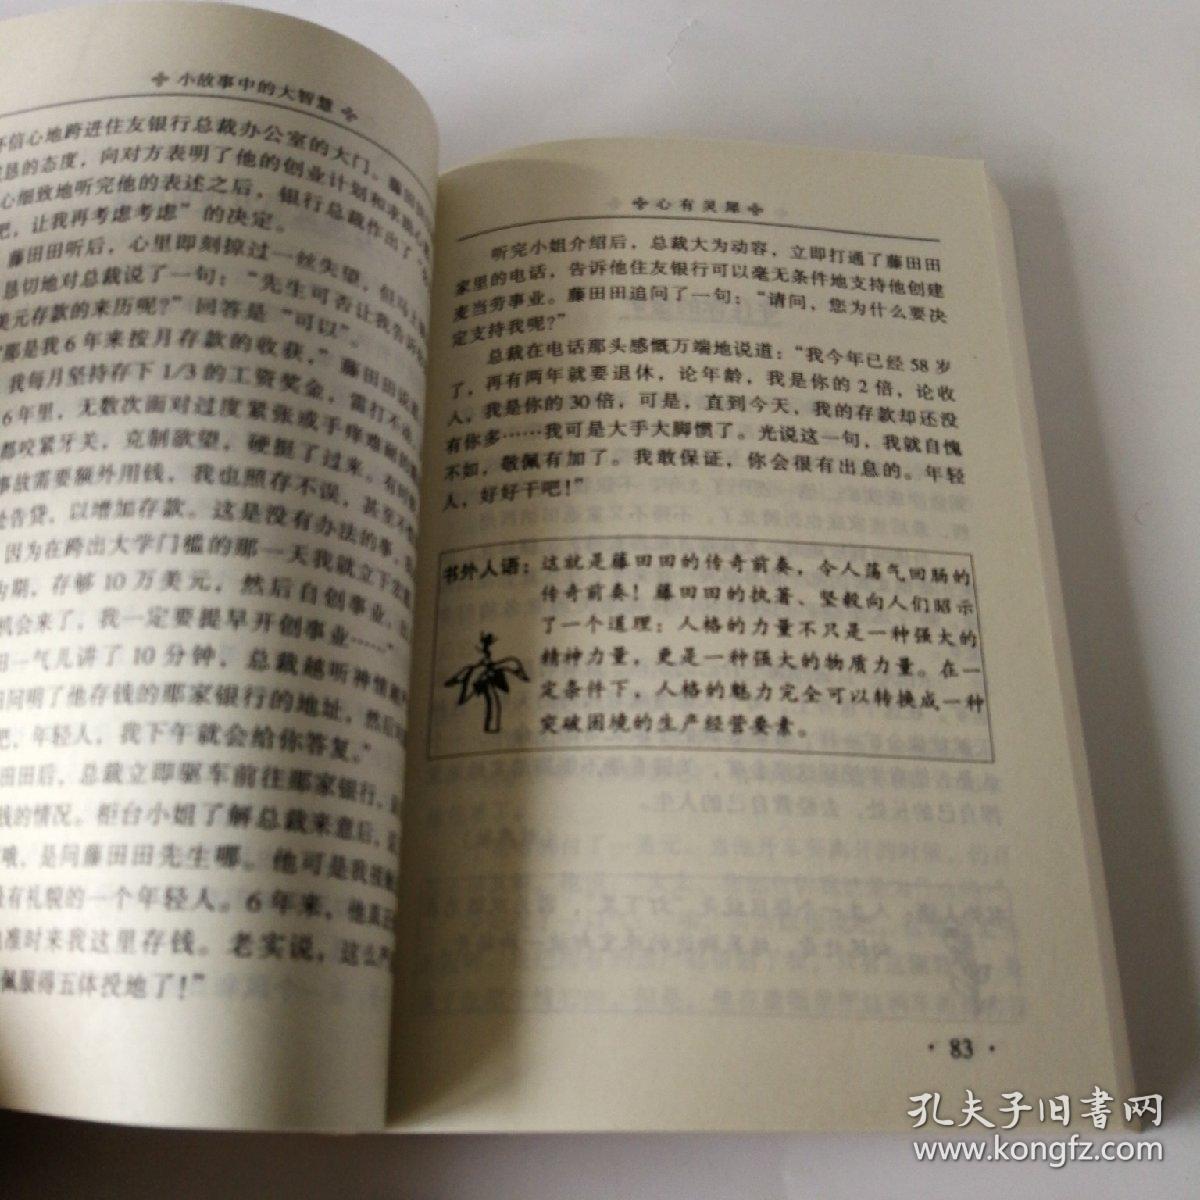 小故事中的大智慧
信心地跨进住友银行总裁办公室的大门。藤田田
恳的态度，向对方表明了他的创业计划和求
心细致地听完他的表述之后，银行总裁作出了
吧，让我再考虑考虑”的决定。
藤田田听后，心里即刻掠过一丝失望，但马上
恳切地对总裁说了一句：“先生可否让我告诉
美元存款的来历呢？”回答是“可以”。
那是我6年来按月存款的收获，”藤田田说
我每月坚持存下1/3的工资奖金，雷打不
6年里，无数次面对过度紧张或手痒难耐的
都咬紧牙关，克制欲望，硬挺了过来。有时
事故需要额外用钱，我也照存不误，甚至不
处告贷，以增加存款。这是没有办法的事，
因为在跨出大学门槛的那一天我就立下宏
为期，存够10万美元，然后自创事业，
机会来了，我一定要提早开创事业……”
田一气儿讲了10分钟，总裁越听神情越
问明了他存钱的那家银行的地址，然后对
吧，年轻人，我下午就会给你答复。”
田田后，总裁立即驱车前往那家银行，
钱的情况。柜台小姐了解总裁来意后，
哦，是问藤田田先生哪。他可是我接
有礼貌的一个年轻人。6年来，他真正
准时来我这里存钱。老实说，这么严
佩服得五体投地了！”
心有灵犀
听完小姐介绍后，总裁大为动容，立即打通了藤田田
家里的电话，告诉他住友银行可以毫无条件地支持他创建
麦当劳事业。藤田田追问了一句：“请问，您为什么要决
定支持我呢？”
总裁在电话那头感慨万端地说道：“我今年已经58岁
了，再有两年就要退休，论年龄，我是你的2倍，论收
入，我是你的30倍，可是，直到今天，我的存款却还没
有你多……我可是大手大脚惯了。光说这一句，我就自愧
不如，敬佩有加了。我敢保证，你会很有出息的。年轻
人，好好干吧！”
书外人语：这就是藤田田的传奇前奏，令人荡气回肠的
传奇前奏！藤田田的执著、坚毅向人们昭示
了一个道理：人格的力量不只是一种强大的
精神力量，更是一种强大的物质力量。在一
定条件下，人格的魅力完全可以转换成一种
突破困境的生产经营要素。
·83·
孔夫子旧书网
www.kongfz.com